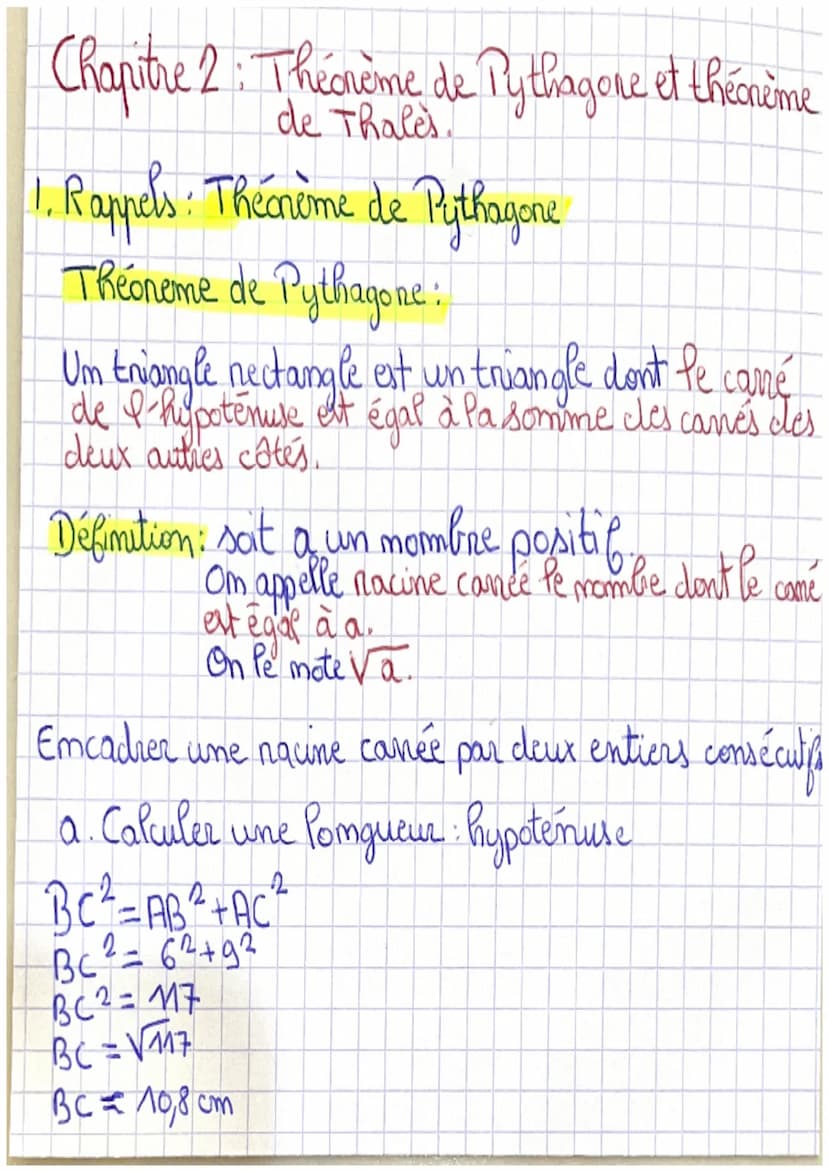 Chapitre 2 : Théorème de Pythagore et théorème
de Thalès.
1. Rappels : Théorème de Pythagore
Théoreme de Pythagore :
Un triangle rectangle est un triangle dont le carré
de l'hypoténuse est égal à la somme des carrés des
deux autres côtés.
Définition : soit a un nombre positif.
On appelle racine carrée le nombre dont le carré
est égal à a.
On le note √a.
Encadrer une racine carrée par deux entiers consécutifs
a. Calculer une longueur : hypoténuse
BC² = AB² + AC²
BC² = 6² + 9²
BC² = 117
BC = √117
BC ≈ 10,8 cm